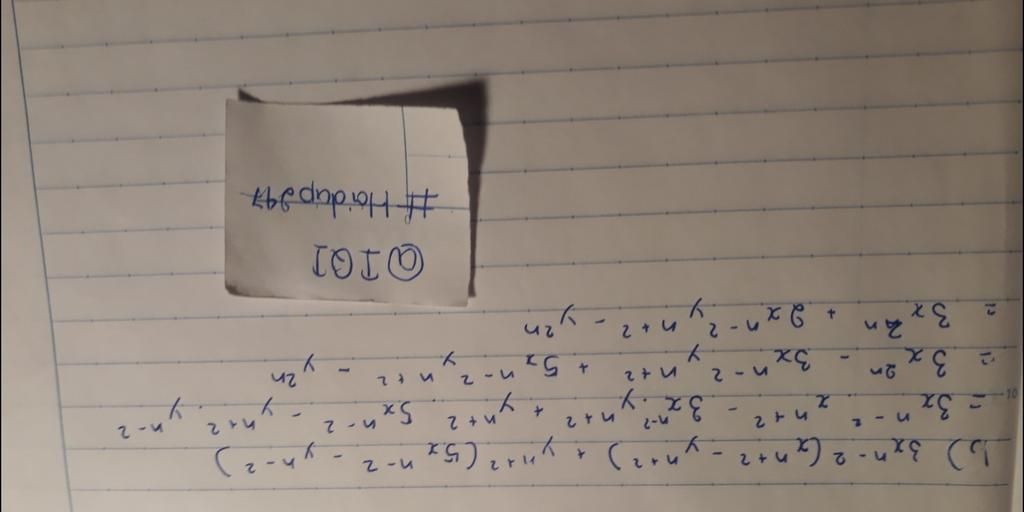 b) 3x n-2 (x n+2 - y n+2) + y n+2 (5x n-2 - y n-2)
= 3x n-2 . x n+2 - 3x n-2 . y n+2 + y n+2 . 5x n-2 - y n+2 . y n-2
= 3x 2n - 3x n-2 y n+2 + 5x n-2 y n+2 - y 2n
= 3x 2n + 2x n-2 y n+2 - y 2n
@IQI
#Haidup247
10